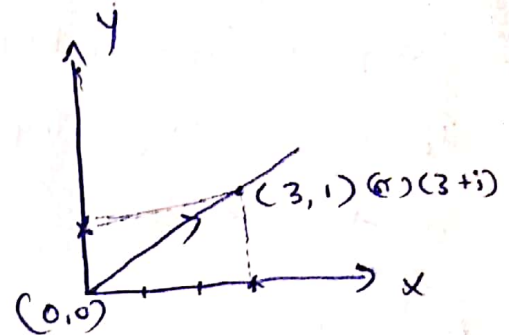 y
(3,1) (or) (3+i)
x
(0,0)